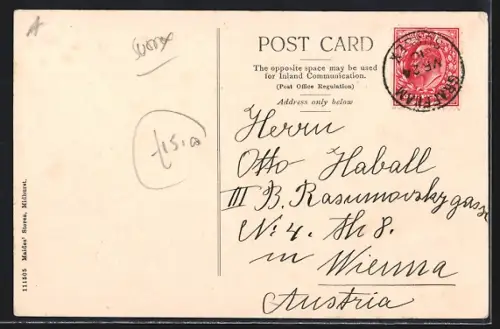 Sussex
£15.00
111505 Maides' Stores, Midhurst.
POST CARD
The opposite space may be used
for Inland Communication.
(Post Office Regulation)
Address only below
GRAFFHAM
Herrn
Otto Haball
III B. Rasumovskygasse
No. 4. Th 8.
in Wienna
Austria